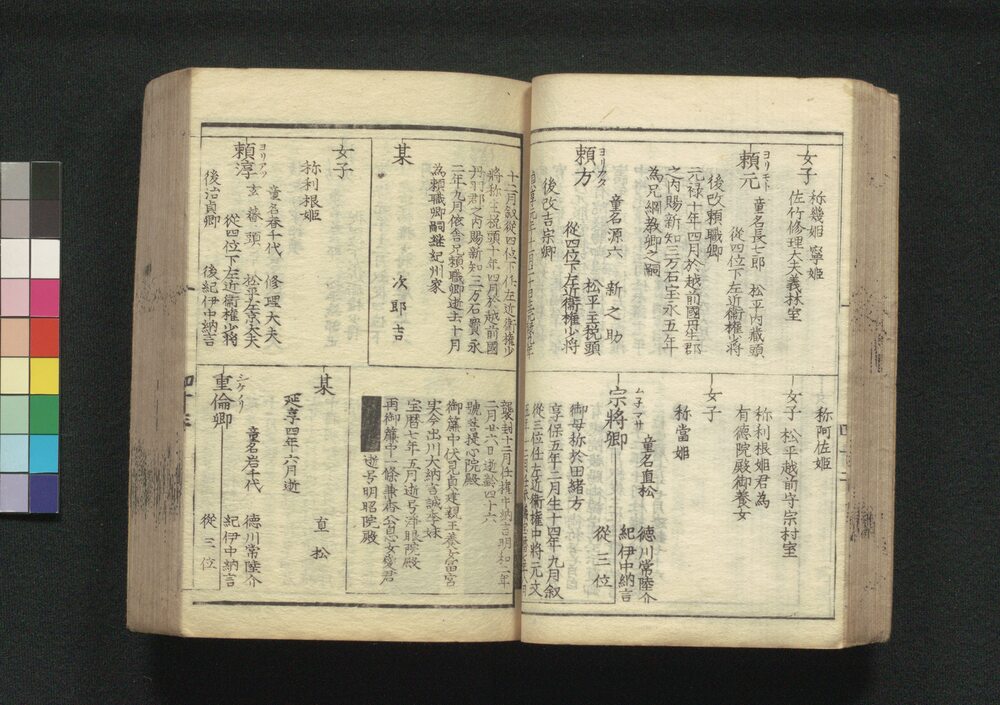 女子
称幾姫 寧姫
佐竹修理大夫義林室
ヨリモト
頼元
童名長七郎 松平内蔵頭
従四位下左近衛権少将
後改頼職卿
元禄十年四月於越前國丹生郡
之内賜新知三万石宝永五年
為兄綱教卿之嗣
ヨリカタ
頼方
童名源六 新之助
松平主税頭
従四位下左近衛権少将
後改吉宗卿
十二月叙従四位下任左近衛権少
将称主税頭十年四月於越前國
丹羽郡之内賜新知三万石寳永
二年九月依舎兄頼職卿逝去十月
為頼職卿嗣継紀州家
某
次郎吉
女子
称利根姫
ヨリアツ
頼淳
童名春千代 修理大夫
玄蕃頭 松平左京大夫
従四位下左近衛権少将
後治貞卿 後紀伊中納言
称阿佐姫
女子
松平越前守宗村室
称利根姫君為
有徳院殿御養女
女子
称當姫
ムネマサ
宗將卿
童名直松
徳川常陸介
紀伊中納言
従三位
御母称於田緒方
享保五年二月生十四年九月叙
従三位任左近衛権中将元文
襲封十二月任権中納言明和二年
二月廿六日逝齢四十六
號菩提心院殿
御簾中伏見貞建親王養女富宮
実今出川大納言誠季妹
宝暦七年五月逝号浄眼院殿
再御簾中一條兼香公息女愛君
逝号明昭院殿
某
延享四年六月逝
直松
シケノリ
重倫卿
童名岩千代
徳川常陸介
紀伊中納言
従三位